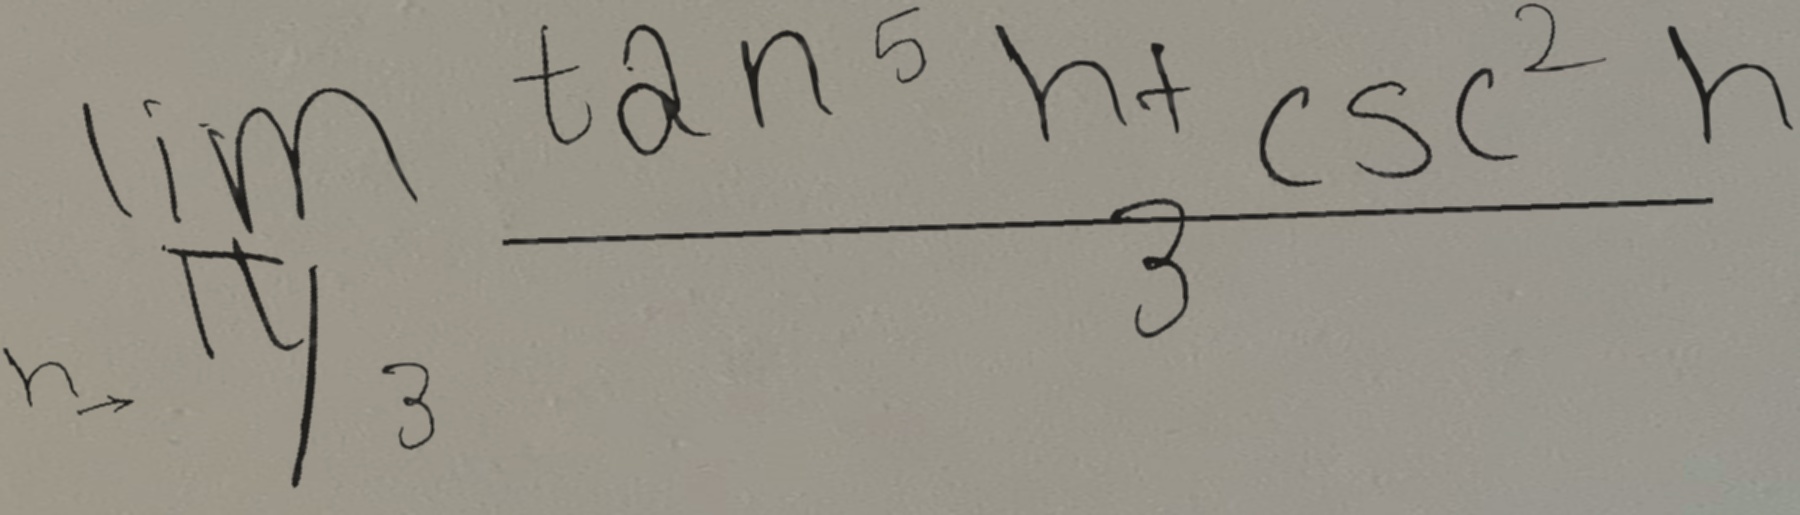 lim n→π/3 (tan⁵ n + csc² n)/3